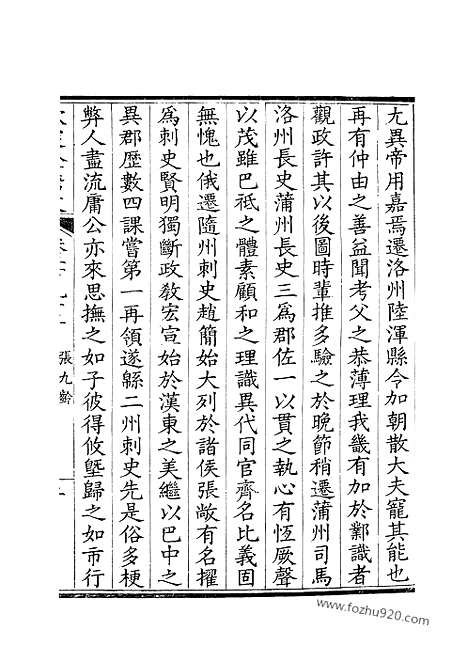 尤異帝用嘉焉遷洛州陸渾縣令加朝散大夫寵其能也
再有仲由之善益聞考父之恭薄理我畿有加於鄴識者
觀政許其以後圖時輩推多驗之於晚節稍遷蒲州司馬
洛州長史蒲州長史三爲郡佐一以貫之執心有恆厥聲
以茂雖巴祗之體素顧和之理識異代同官齊名比義固
無愧也俄遷隨州刺史趙簡始大列於諸侯張敞有名擢
爲刺史賢明獨斷政教宏宣始於漢東之美繼以巴中之
異郡歷數四課嘗第一再領遂緜二州刺史先是俗多梗
弊人盡流庸公亦來思撫之如子彼得攸墍歸之如市行
張九齡
www.fozhu920.com